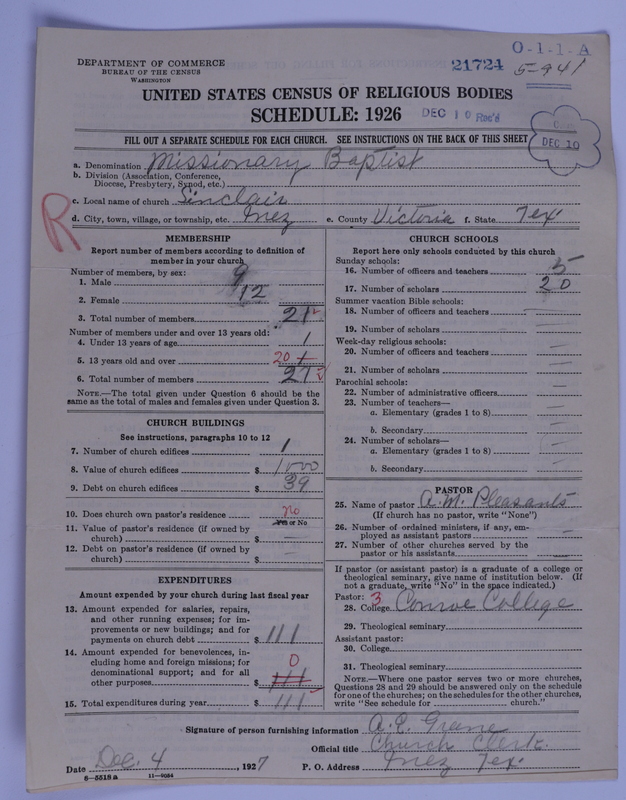 DEPARTMENT OF COMMERCE
BUREAU OF THE CENSUS
WASHINGTON
21724
O-1-1-A
5-941
UNITED STATES CENSUS OF RELIGIOUS BODIES
SCHEDULE: 1926
DEC 10 Rec'd
DEC 10
FILL OUT A SEPARATE SCHEDULE FOR EACH CHURCH. SEE INSTRUCTIONS ON THE BACK OF THIS SHEET
a. Denomination Missionary Baptist
b. Division (Association, Conference,
Diocese, Presbytery, Synod, etc.)
c. Local name of church Sinclair
d. City, town, village, or township, etc. Inez e. County Victoria f. State Tex
R
MEMBERSHIP
Report number of members according to definition of
member in your church
Number of members, by sex:
1. Male 9
2. Female 12
3. Total number of members 21
Number of members under and over 13 years old:
4. Under 13 years of age 1
5. 13 years old and over 20
6. Total number of members 21
NOTE.—The total given under Question 6 should be the
same as the total of males and females given under Question 3.
CHURCH BUILDINGS
See instructions, paragraphs 10 to 12
7. Number of church edifices 1
8. Value of church edifices $ 1000
9. Debt on church edifices $ 39
10. Does church own pastor's residence? no
Yes or No
11. Value of pastor's residence (if owned by
church) $ —
12. Debt on pastor's residence (if owned by
church) $ —
EXPENDITURES
Amount expended by your church during last fiscal year
13. Amount expended for salaries, repairs,
and other running expenses; for im-
provements or new buildings; and for
payments on church debt $ 111
14. Amount expended for benevolences, in-
cluding home and foreign missions; for
denominational support; and for all
other purposes $ 111 0
15. Total expenditures during year $ 111
CHURCH SCHOOLS
Report here only schools conducted by this church
Sunday schools:
16. Number of officers and teachers 5
17. Number of scholars 20
Summer vacation Bible schools:
18. Number of officers and teachers —
19. Number of scholars —
Week-day religious schools:
20. Number of officers and teachers —
21. Number of scholars —
Parochial schools:
22. Number of administrative officers —
23. Number of teachers—
a. Elementary (grades 1 to 8) —
b. Secondary —
24. Number of scholars—
a. Elementary (grades 1 to 8) —
b. Secondary —
PASTOR
25. Name of pastor A. M. Pleasants
(If church has no pastor, write "None")
26. Number of ordained ministers, if any, em-
ployed as assistant pastors —
27. Number of other churches served by the
pastor or his assistants —
If pastor (or assistant pastor) is a graduate of a college or
theological seminary, give name of institution below. (If
not a graduate, write "No" in the space indicated.)
Pastor: 3
28. College Conroe College
29. Theological seminary
Assistant pastor:
30. College
31. Theological seminary
NOTE.—Where one pastor serves two or more churches,
Questions 28 and 29 should be answered only on the schedule
for one of the churches; on the schedules for the other churches,
write "See schedule for church."
Signature of person furnishing information
Official title Church Clerk
Date Dec. 4, 1927 P. O. Address Inez Tex
6-5518 a 11-9084